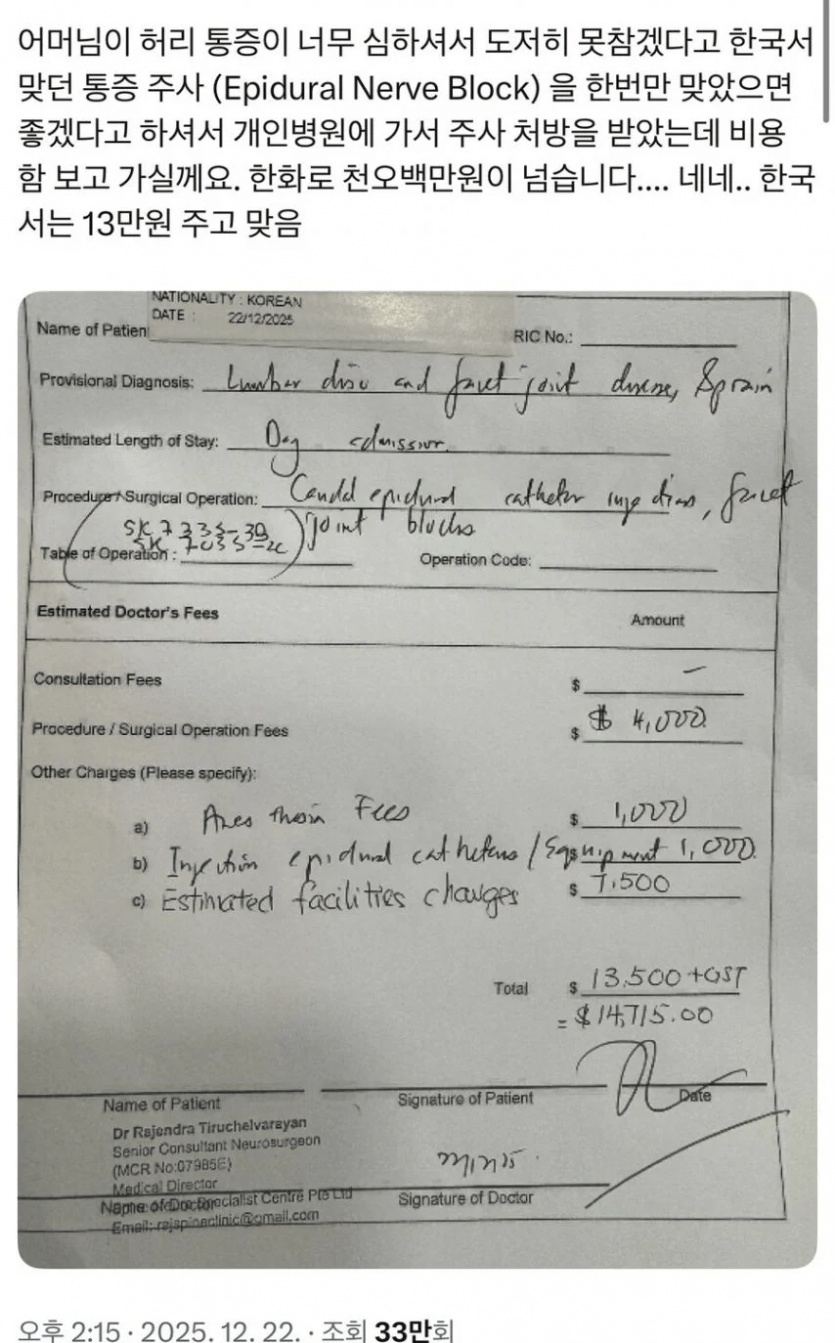 어머님이 허리 통증이 너무 심하셔서 도저히 못참겠다고 한국서
맞던 통증 주사 (Epidural Nerve Block) 을 한번만 맞았으면
좋겠다고 하셔서 개인병원에 가서 주사 처방을 받았는데 비용
함 보고 가실께요. 한화로 천오백만원이 넘습니다.... 네네.. 한국
서는 13만원 주고 맞음
NATIONALITY : KOREAN
DATE : 22/12/2025
Name of Patien
RIC No.:
Provisional Diagnosis: Lumbar disc and facet joint disease, Sprain
Estimated Length of Stay: Day admission
Procedure / Surgical Operation: Caudal epidural catheter injections, facet
joint blocks
Table of Operation :
Operation Code:
Estimated Doctor's Fees
Amount
Consultation Fees $ -
Procedure / Surgical Operation Fees $ $ 4,000
Other Charges (Please specify):
a) Fees $ 1,000
b) Injection epidural catheters / Equipment 1,000
c) Estimated facilities charges $ 7,500
Total $ 13,500 + GST
= $ 14,715.00
Name of Patient
Signature of Patient
Date
Dr Rajendra Tiruchelvarayan
Senior Consultant Neurosurgeon
(MCR No:07985E)
Medical Director
Specialist Centre Pte Ltd
Signature of Doctor
Email: rajspineclinic@gmail.com
오후 2:15 · 2025. 12. 22. · 조회 33만회